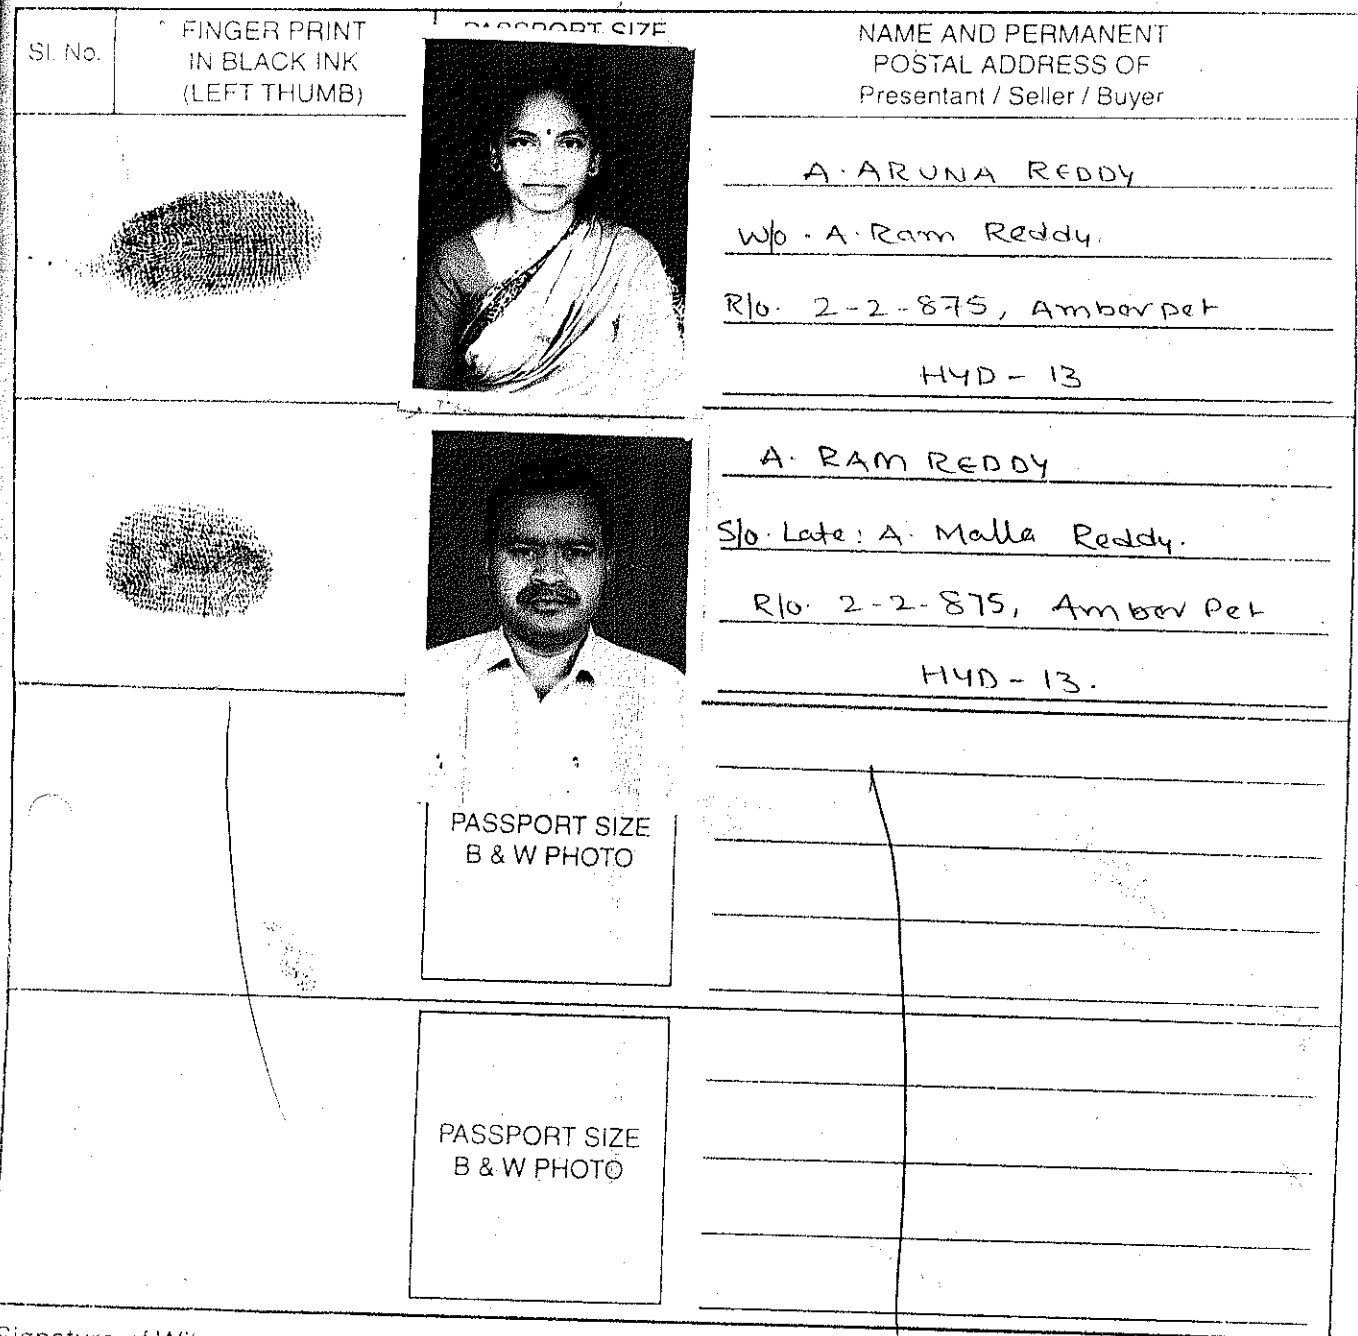 Sl. No.
FINGER PRINT
IN BLACK INK
(LEFT THUMB)
PASSPORT SIZE
NAME AND PERMANENT
POSTAL ADDRESS OF
Presentant / Seller / Buyer
A. ARUNA REDDY
W/o. A. Ram Reddy.
R/o. 2-2-875, Amberpet
HYD - 13
A. RAM REDDY
S/o. Late: A. Malla Reddy.
R/o. 2-2-875, Amber Pet
HYD - 13.
PASSPORT SIZE
B & W PHOTO
PASSPORT SIZE
B & W PHOTO
Signature of